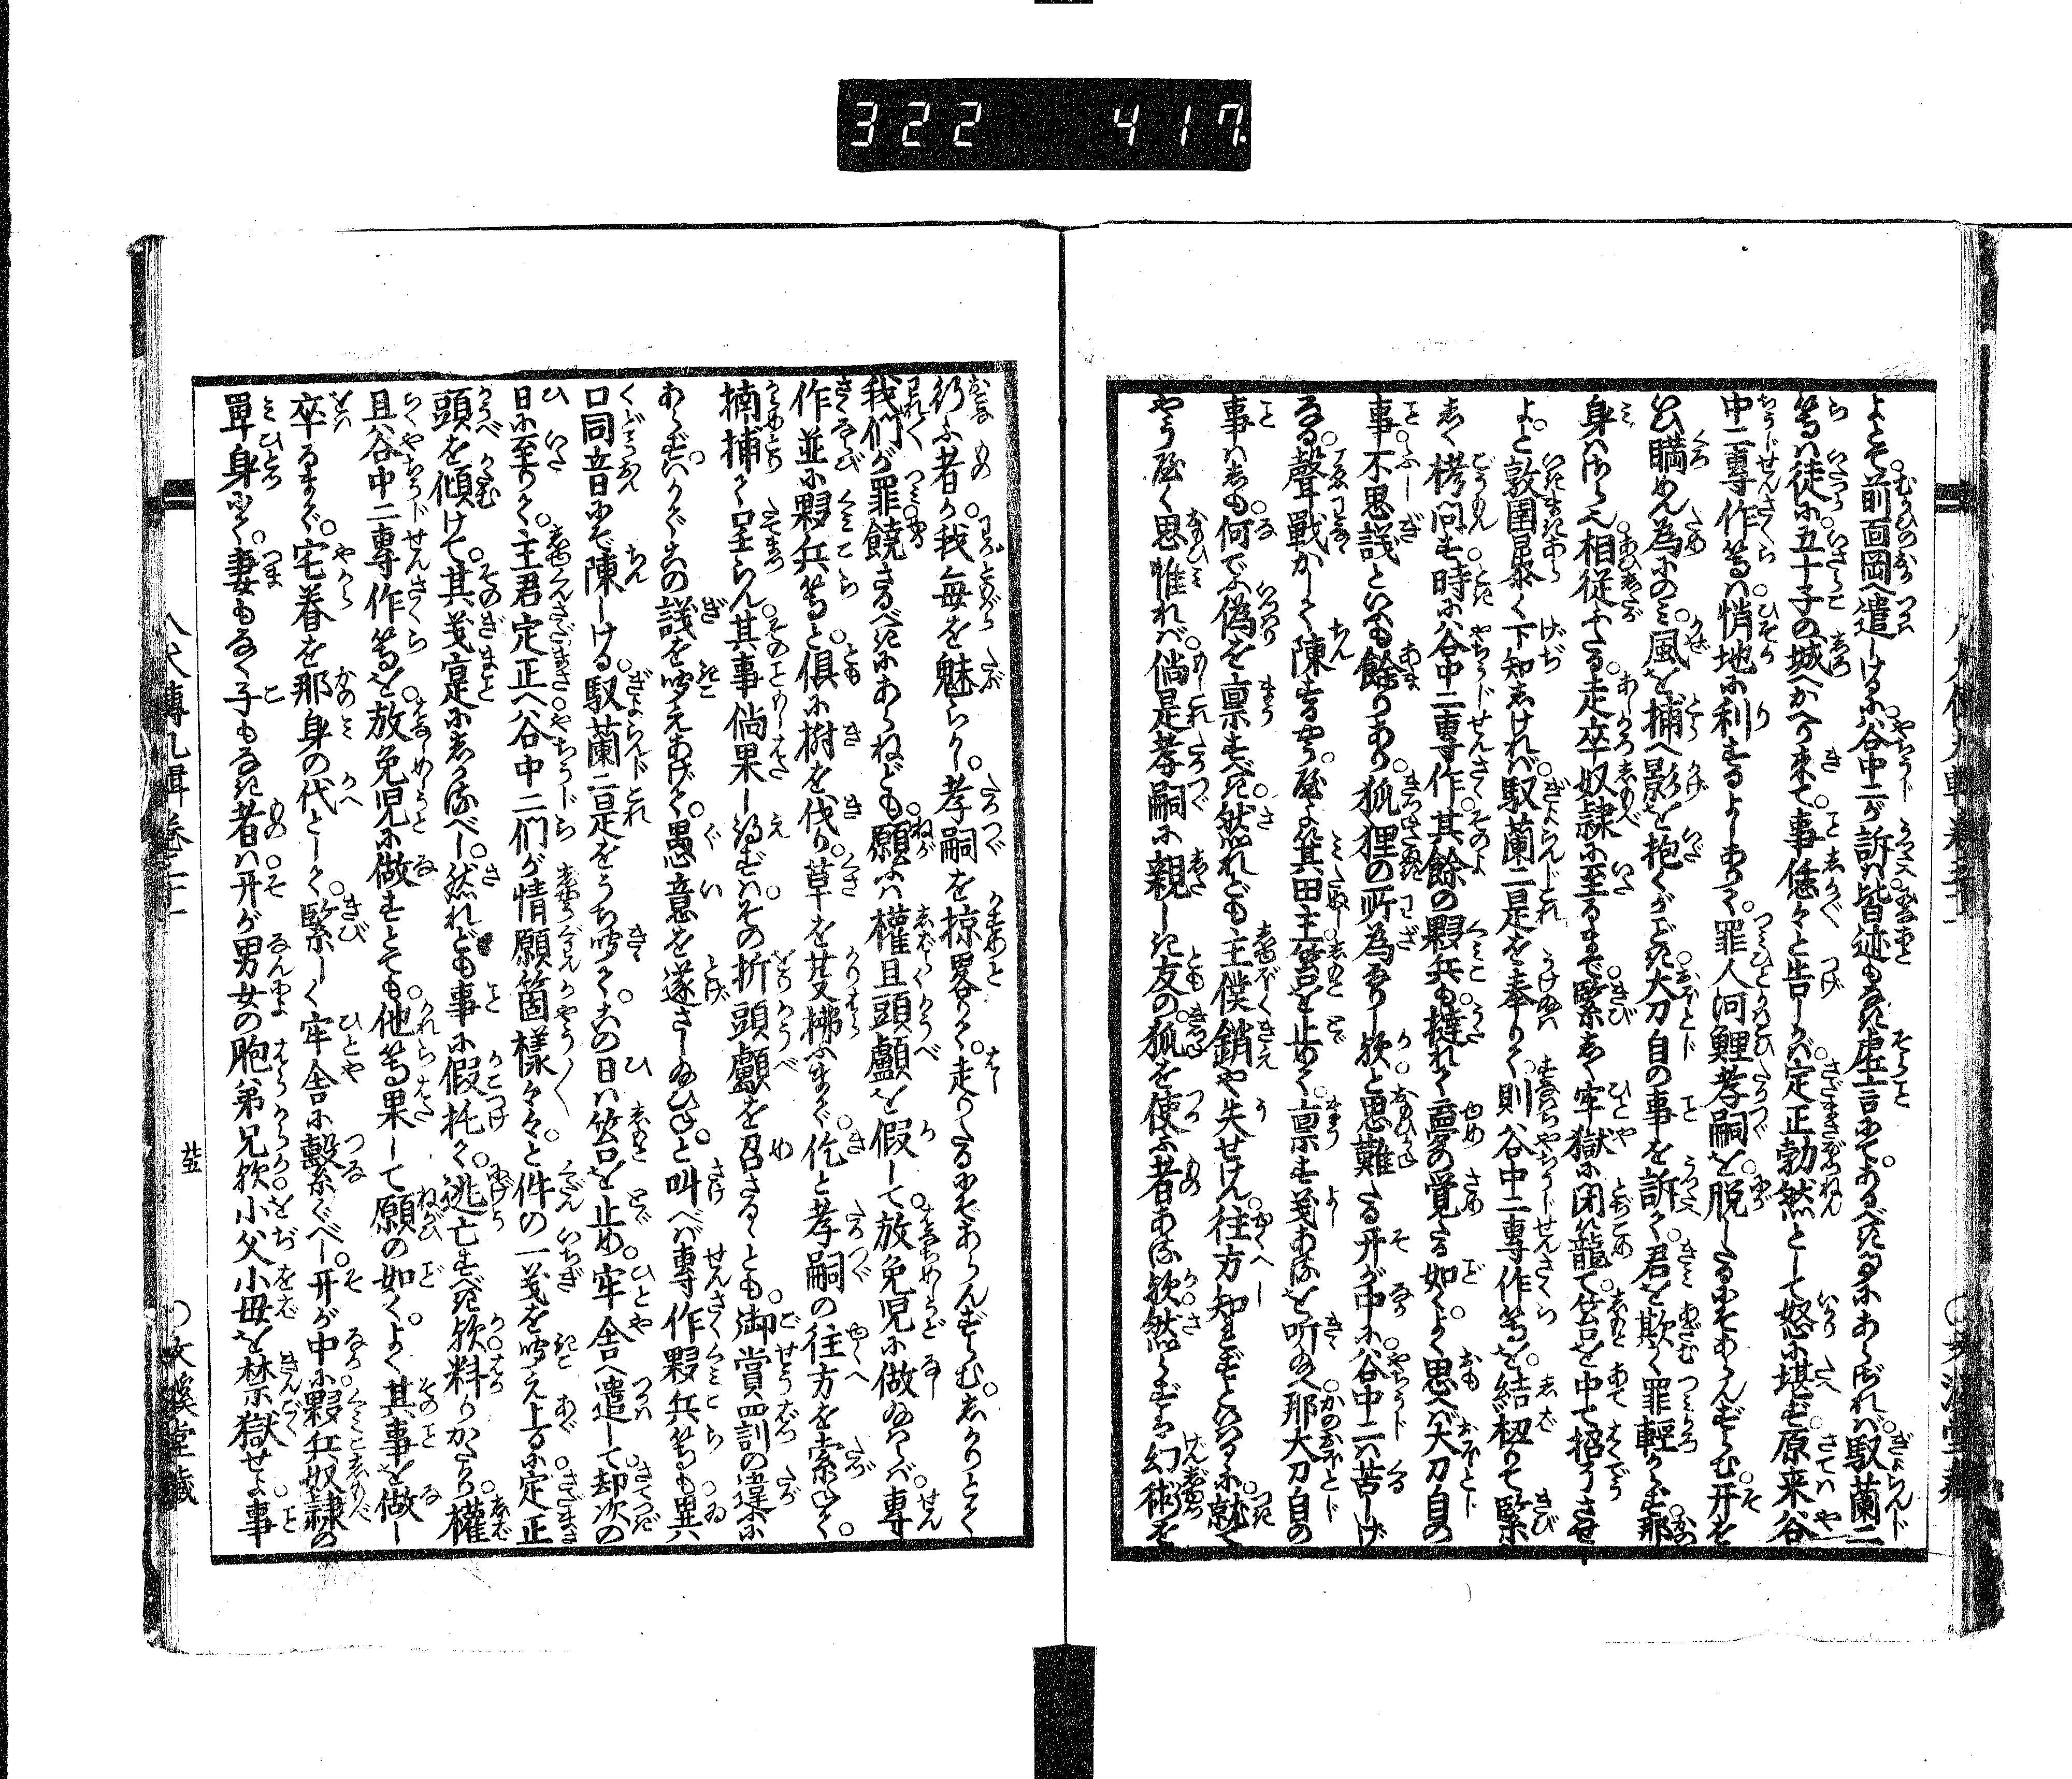 322 417
よとぞ前面岡へ遣しけるに谷中二が訴は皆迹もなき虚言にてあるべきにあらざれば馭蘭二
等は徒に五十子の城へかへり来て事恁々と告しかば定正勃然として怒に堪ず原来谷
中二專作等は悄地に利するよしありて罪人河鯉孝嗣を脱したるにぞあらんずらむ开を
い瞞めん為にのみ風を捕へ影を抱くがごとき大刀自の事を訴て君を欺く罪輕からず那
身はさら也相從ふたる走卒奴隷に至るまで緊しく牢獄に閉籠て笞を中て招うさせ
よと敦圉暴く下知しければ馭蘭二是を奉りて則谷中二專作等を結扭りて緊
しく栲問す時に谷中二專作其餘の夥兵も撻れて夢の覚たる如くよく思へば大刀自の
事不思議といふも餘りあり狐狸の所為なりし欤と思難たる开が中に谷中二は苦しげ
なる聲戰かして陳ずるやう殿よ箕田主笞を止めて禀す義あるを听給へ那大刀自の
事はしも何でふ偽を禀すべき然れども主僕銷や失せけん往方知れずといふに就て
やうやく思惟れば倘是孝嗣に親しき友の狐を使ふ者ある欤然らずは幻術を
行ふ者か我們を魅らし孝嗣を掠畧りて走りたるにぞあらんずらむしかりとて
我們が罪饒さるべきにあらねども願ふは權且頭顱を假して放免児に做給はば專
作並に夥兵等と俱に樹を伐り草を芟拂ふまで佗と孝嗣の往方を索ねて
摘捕て呈らん其事倘果し得ずはその折頭顱を召さるるとも御賞罰の違に
あらずいかでこの議を聞えあげて愚意を遂さし給ひねと叫べば專作夥兵等も異
口同音にぞ陳しける馭蘭二是をうち聞てこの日は笞を止め牢舎へ遣して却次の
日に至りて主君定正へ谷中二們が情願箇樣々々と件の一義を聞え上るに定正
頭を傾けて其義寔にしかるべし然れども事に假托て逃亡すべき欤料りかたかり權
且谷中二專作等を放免児に做すとても他等果して願の如くよく其事を做し
卒るまで宅眷を那身の代として緊しく牢舎に繋ぐべし开が中に夥兵奴隷の
單身にて妻もなく子もなき者は开が男女の胞弟兄欤小父小母を禁獄せよ事
八犬傳九輯卷三十一
廿五
○文溪堂藏